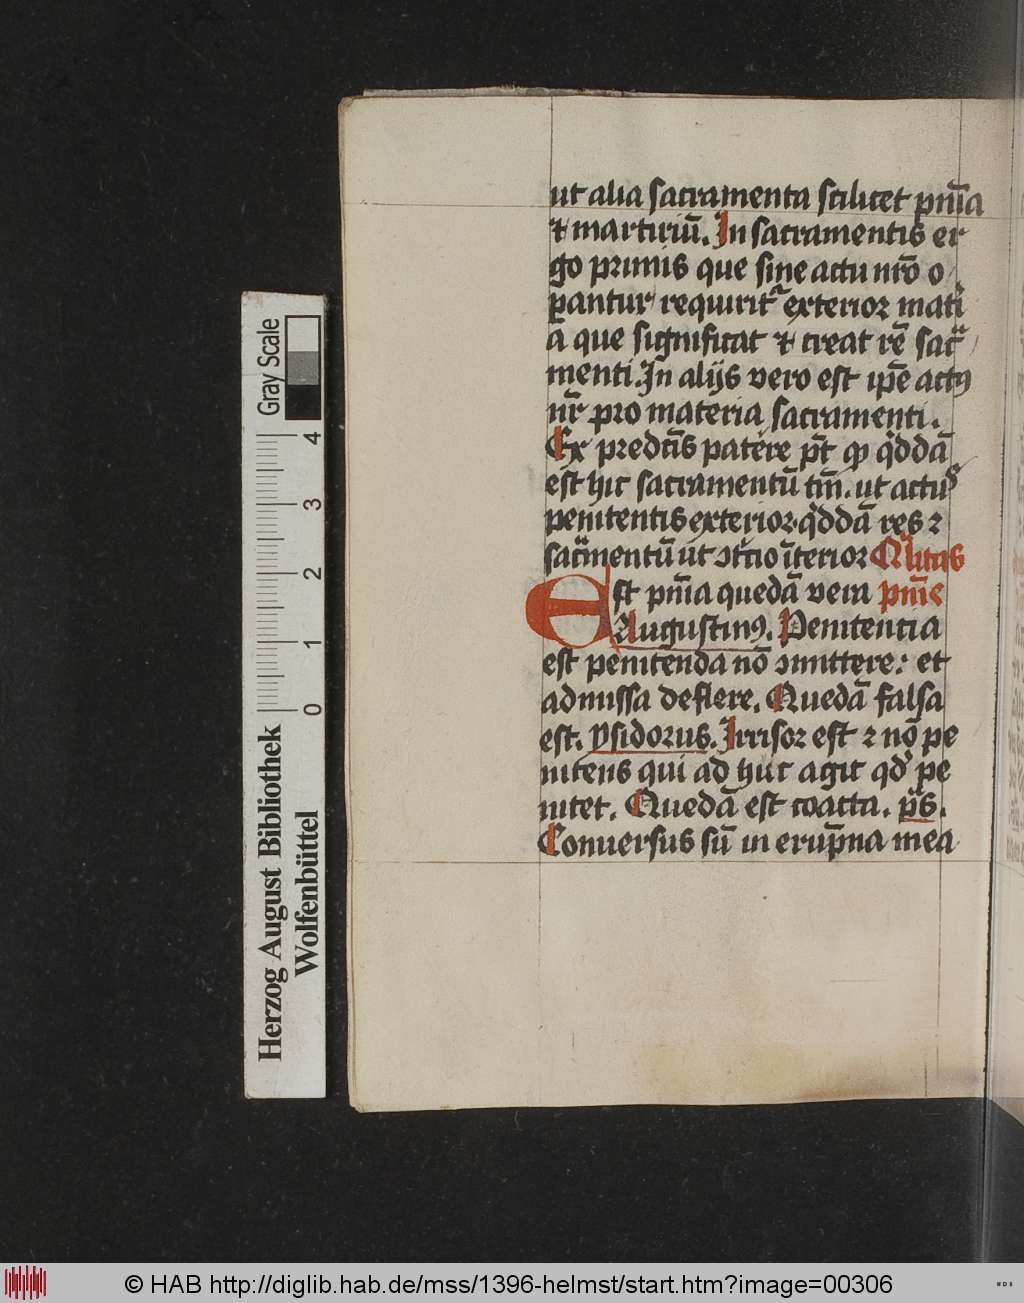 ut alia sacramenta scilicet pnīa
⁊ martiriū. In sacramentis er
go primis que sine actu nr̄o o
ꝑantur requirit᷑ exterior mati
a que significat ⁊ creat rē sac̄
menti. In alijs vero est ip̄e actꝰ
nr̄ pro materia sacramenti.
Ex predc̄is patere pt̄ ꝙ q̄ddā
est hic sacramentū tm̄. ut actus
penitentis exterior. q̄ddā res ⁊
sac̄mentū ut ↄt͛cio īterior Q̄litas
Est pnīa quedā vera pnīe
Augustinꝰ. Penitencia
est penitenda nō ↄmittere: et
admissa deflere. Quedā falsa
est. ysidorus. Irrisor est ⁊ nō pe
nitens qui ad huc agit qd̓ pe
nitet. Quedā est coacta. p̄s.
Conuersus sū in erūpna mea
Herzog August Bibliothek
Wolfenbüttel
0 1 2 3 4
Gray Scale
© HAB http://diglib.hab.de/mss/1396-helmst/start.htm?image=00306